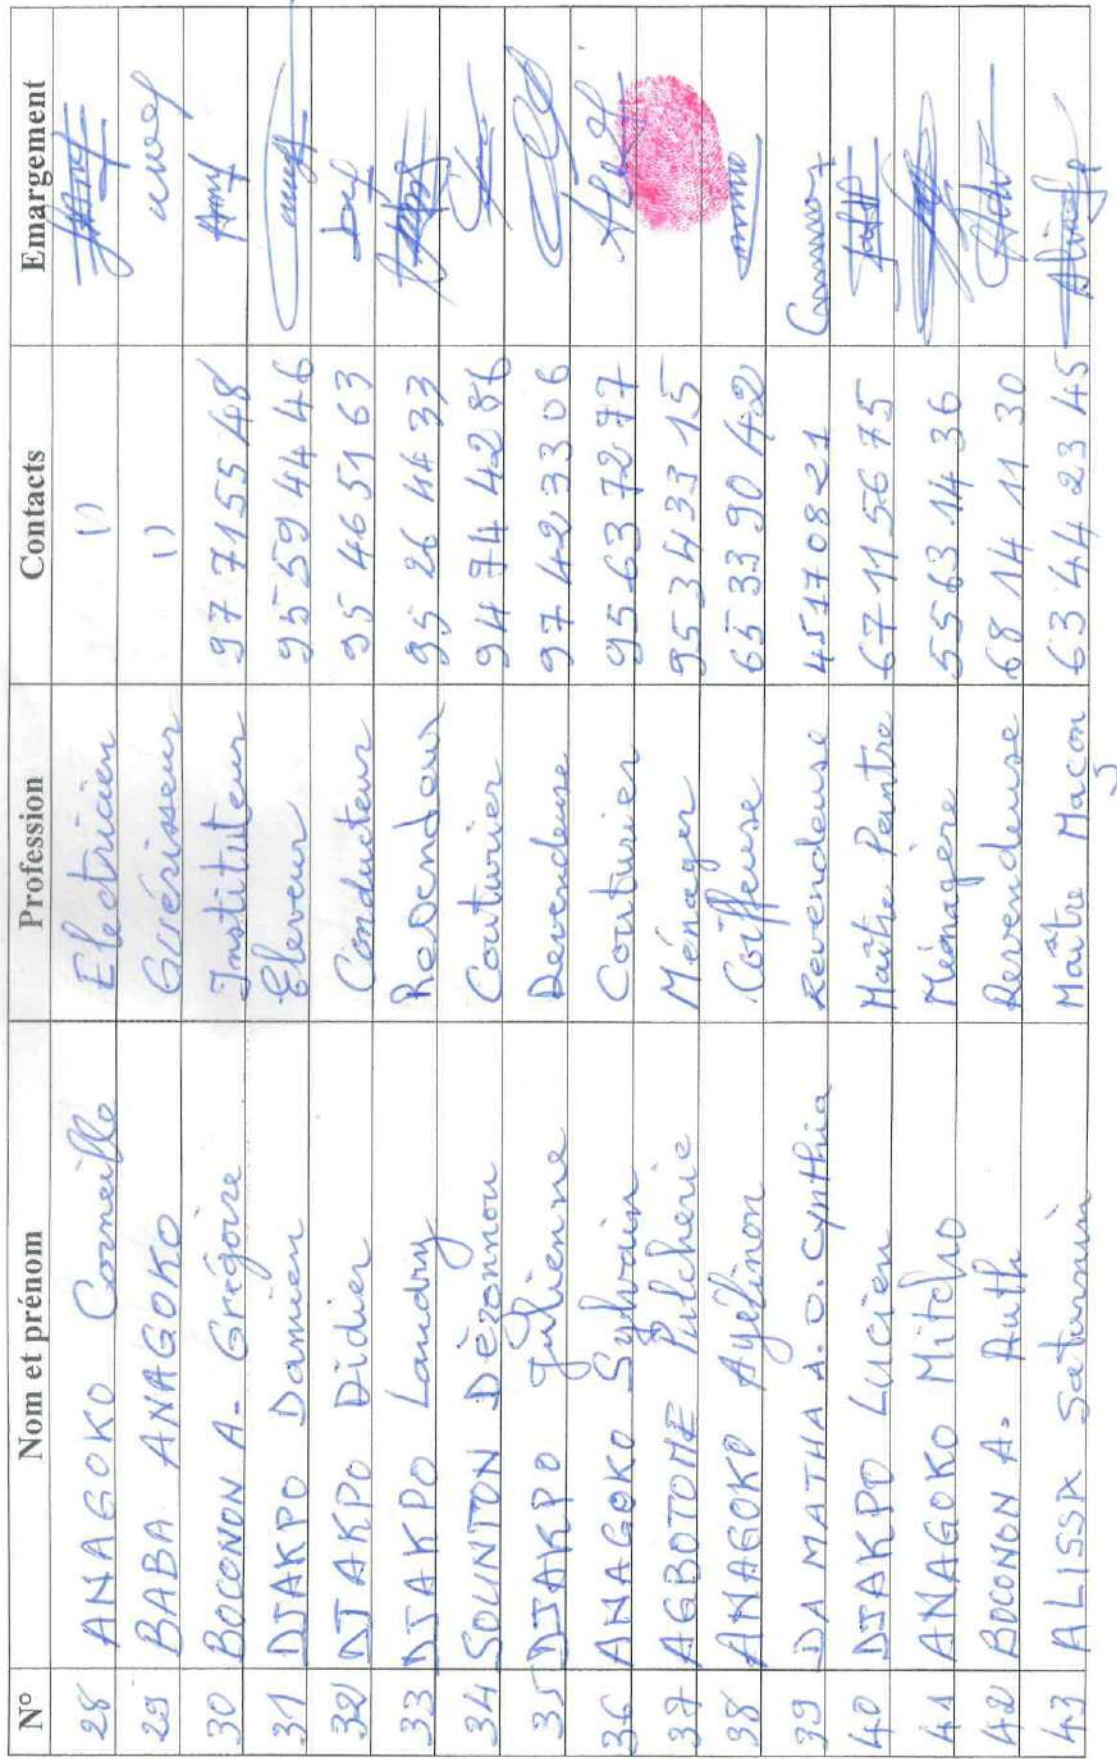 N° Nom et prénom Profession Contacts Emargement
28 ANAGOKO Corneille Electricien ()
29 BABA ANAGOKO Guérisseur ()
30 BOCONON A. Grégoire Instituteur 97 71 55 48
31 DJAKPO Damien Eleveur 95 59 44 46
32 DJAKPO Didier Conducteur 95 46 51 63
33 DJAKPO Landry Revendeur 95 26 44 33
34 SOUNTON Dèzonnou Couturier 94 94 42 86
35 DJAKPO Julienne Revendeuse 97 42 33 06
36 ANAGOKO Sylvain Couturier 95 63 72 97
37 AGBOTOME Pulcherie Ménager 95 34 33 15
38 ANAGOKO Ayélinon Coiffeuse 65 33 90 42
39 DA MATHA A. O. Cynthia Revendeuse 45 17 08 21
40 DJAKPO Lucien Maître Peintre 67 11 56 75
41 ANAGOKO Mitcho Ménagère 55 63 14 36
42 BOCONON A. Ruth Revendeuse 68 14 11 30
43 ALISSA Saturnin Maître Maçon 63 44 23 45